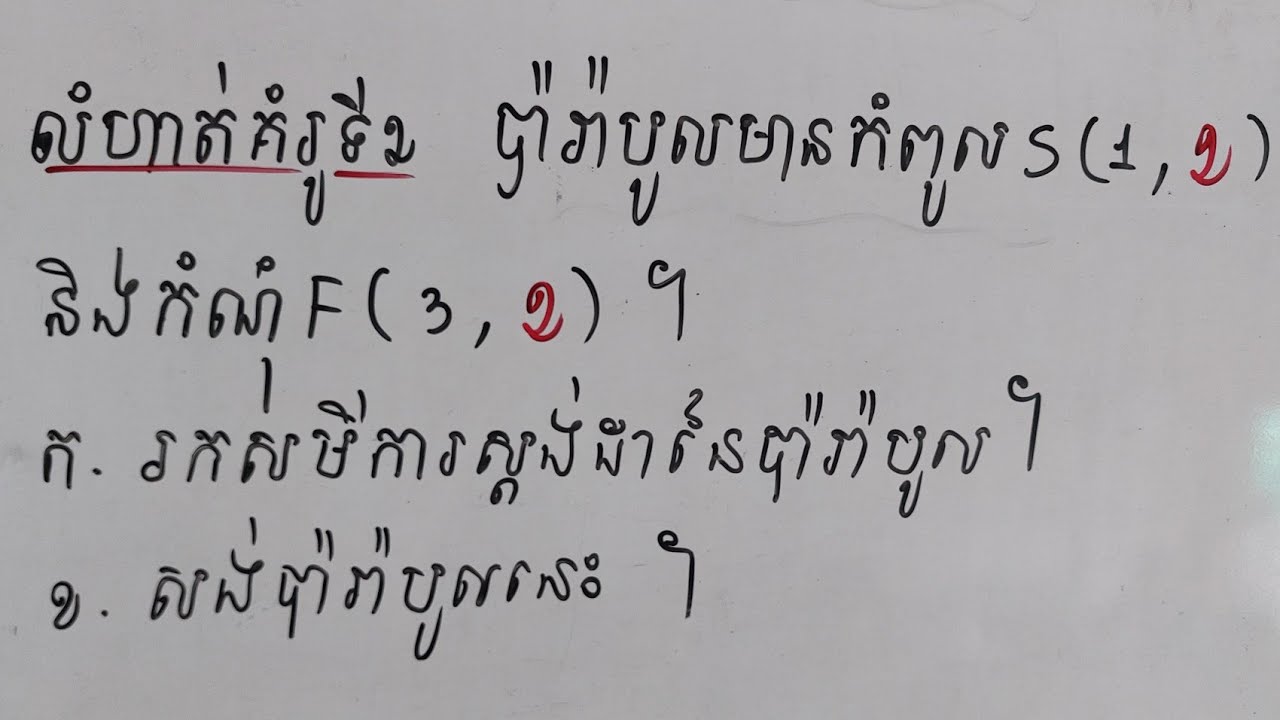 លំហាត់គំរូទី២ ប៉ារ៉ាបូលមានកំពូល S(1, 2)
និងកំណុំ F(3, 2) ។
ក. រកសមីការស្តង់ដានៃប៉ារ៉ាបូល ។
ខ. សង់ប៉ារ៉ាបូលនេះ ។